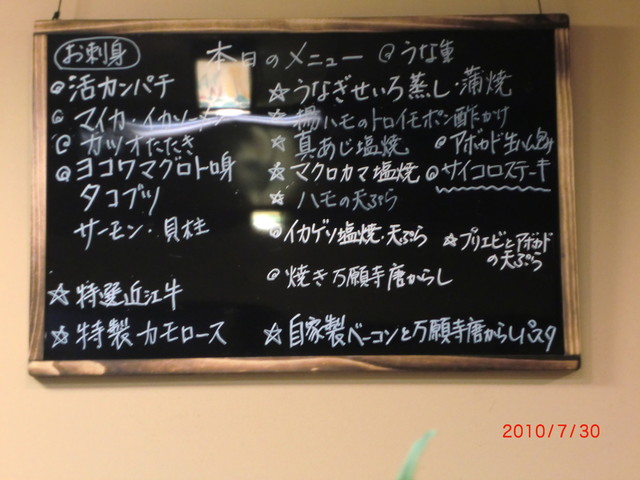 お刺身
本日のメニュー ◎うな重
◎活カンパチ
◎マイカ・イカソーメン
◎カツオたたき
◎ヨコワマグロトロ身
タコブツ
サーモン・貝柱
☆特選近江牛
☆特製カモロース
☆うなぎせいろ蒸し・蒲焼
☆揚ハモのトロイモポン酢かけ
☆真あじ塩焼 ◎アボカド生ハム
☆マグロカマ塩焼 ◎サイコロステーキ
☆ハモの天ぷら
◎イカゲソ塩焼・天ぷら
☆プリエビとアボカド
の天ぷら
◎焼き万願寺唐からし
☆自家製ベーコンと万願寺唐からしパスタ
2010/7/30